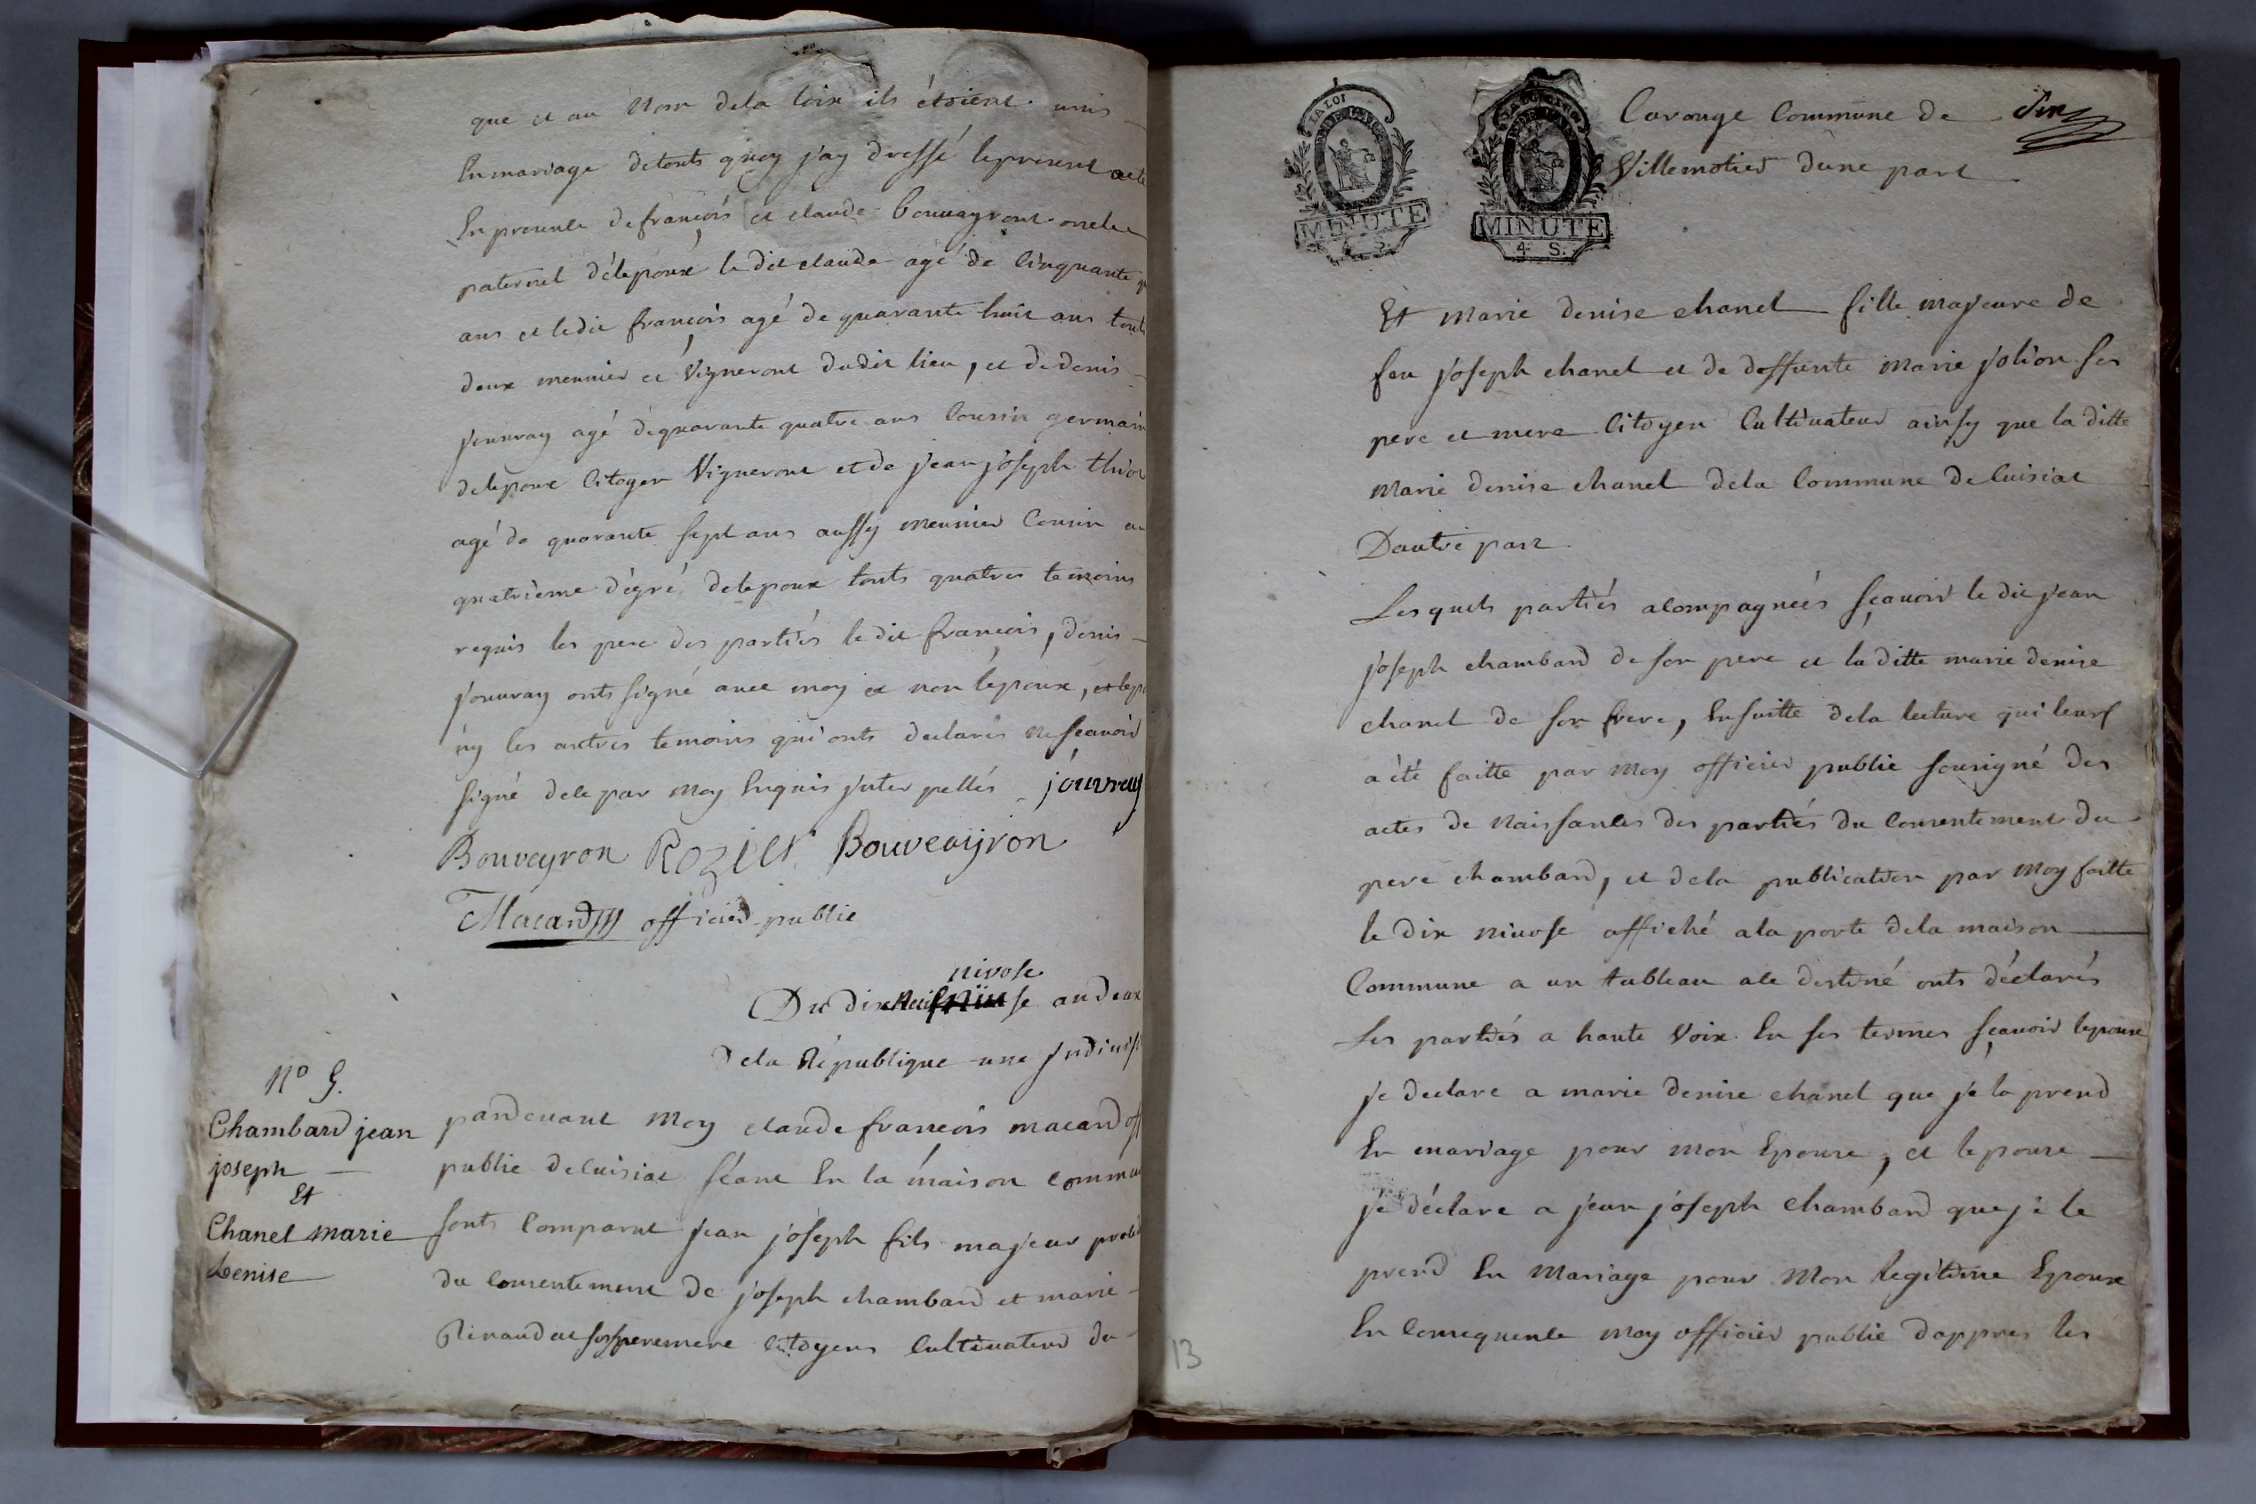 que et au Nom dela loix ils étoient unis
En mariage detouts quoy j'ay dressé lepresent acte
En presence defrançois et claude bouvayront oncle
paternel délepoux le dit claude agé de Cinquante
ans et ledit françois agé de quarante huit ans touts
deux meunier et Vigneront dudit lieu, et de denis
jouvray agé déquarante quatre ans Cousin germain
delepoux Citoyen Vigneront et de jean joseph
agé de quarante sept ans aussy meunier Cousin au
quatrieme dégré delepoux touts quatres temoins
requis les pere des partiés le dit françois, denis
jouvray onts signé avec moy et non lépoux,
ny les autres temoins qui onts declarés ne sçavoir
signé dece par moy Enquis jnterpellés jouvray
Bouveyron Rozier Bouveaÿron
Macard officier public
nivose
Du dix Neuf se an deux
Dela République une jndivise
N° 5.
Chambard jean
joseph
Et
Chanel marie
denise
pardevant moy claude françois macard off
public decuisiat séant En la maison commu
sonts Comparut jean joseph fils majeur
du Consentement de joseph chambard et marie
ses pere mere citoyens Cultivateur du
LA LOI
MINUTE
MINUTE
4 S.
Carouge Commune de
Villemotier dune part
Et marie denise chanel fille majeure de
feu joseph chanel et de deffunte marie jolion ses
pere et mere Citoyen Cultivateur ainsy que la ditte
marie denise chanel dela Commune de Cuisiat
Dautre part
Les quels partiés acompagneés sçavoir le dit jean
joseph chambard de son pere et la ditte marie denise
chanel de son frere, Ensuitte dela lecture qui leurs
a été faitte par moy officier public sousigné des
actes de Naissances des partiés du Consentement du
pere chambard, et dela publication par moy faitte
le dix nivose affiché ala porte dela maison
Commune a un tableau ace destiné onts déclarés
Les partiés a haute Voix En ses termes sçavoir lepoux
je declare a marie denise chanel que je la prend
En mariage pour mon Epouse, et lepouse
je déclare a jean joseph chambard que je le
prend En Mariage pour Mon legitime Epoux
En Consequence moy officier public dappres les
13